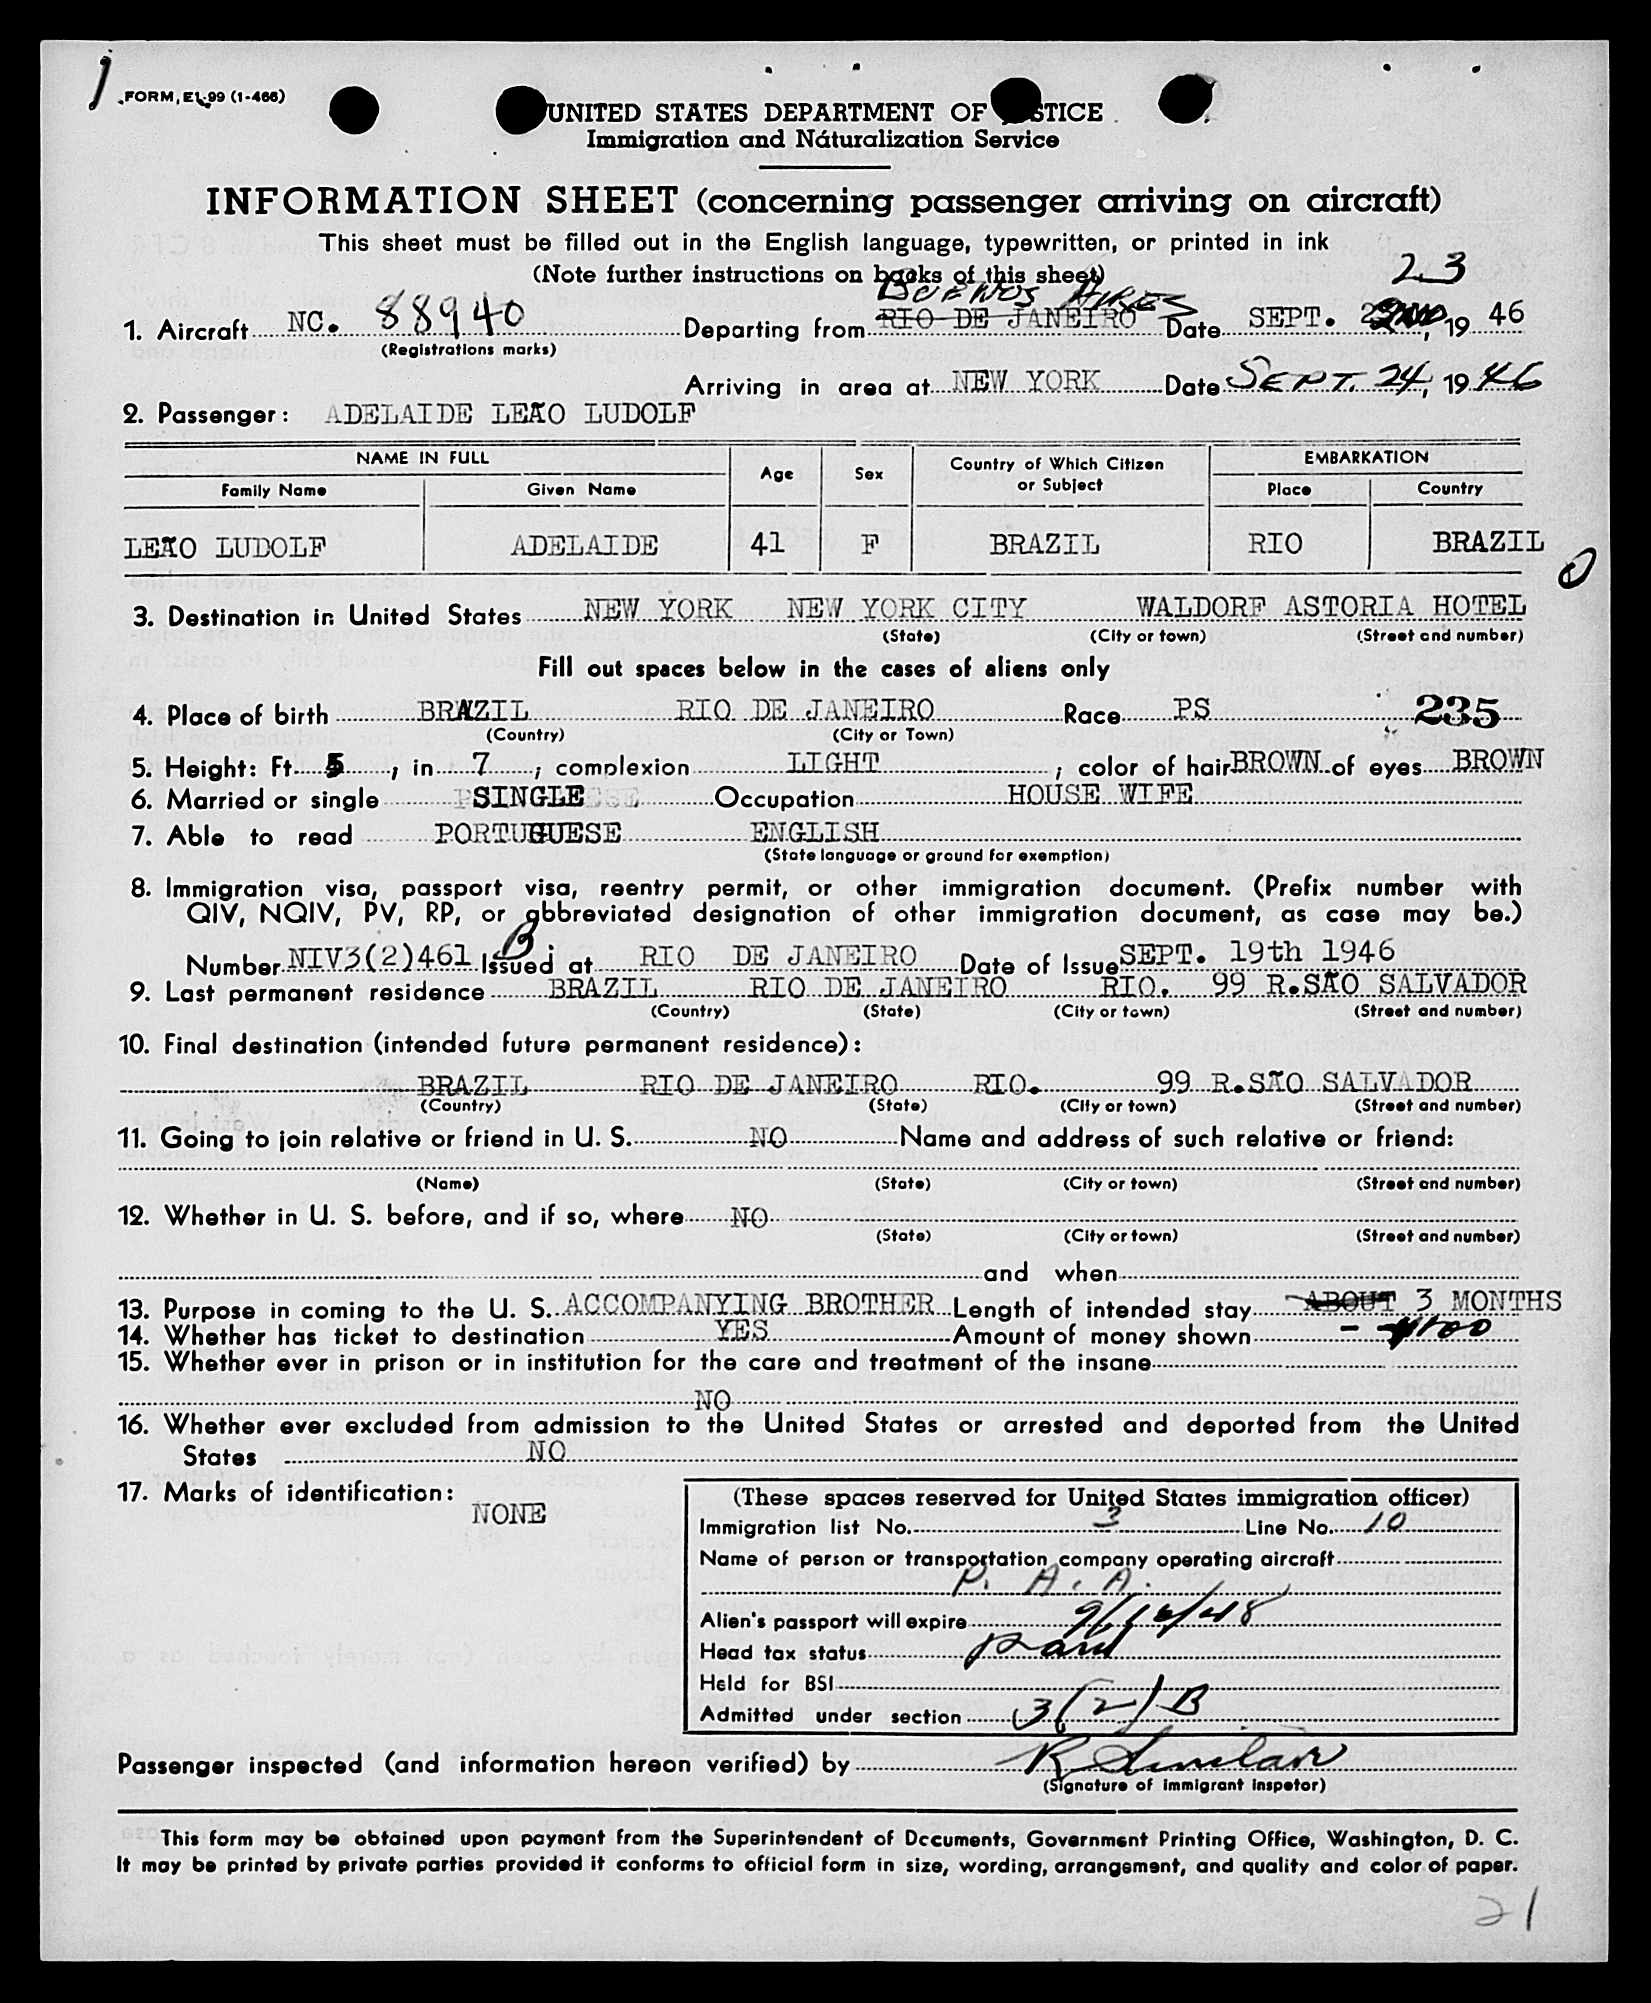 j
FORM, EL-99 (1-466)
UNITED STATES DEPARTMENT OF JUSTICE
Immigration and Naturalization Service
INFORMATION SHEET (concerning passenger arriving on aircraft)
This sheet must be filled out in the English language, typewritten, or printed in ink
(Note further instructions on backs of this sheet)
23
BUENOS AIRES
1. Aircraft NC. 88940 Departing from RIO DE JANEIRO Date SEPT. , 19 46
(Registrations marks)
Arriving in area at NEW YORK Date SEPT. 24, 19 46
2. Passenger: ADELAIDE LEÃO LUDOLF
NAME IN FULL Age Sex Country of Which Citizen or Subject EMBARKATION
Family Name Given Name Place Country
LEÃO LUDOLF ADELAIDE 41 F BRAZIL RIO BRAZIL
3. Destination in United States NEW YORK NEW YORK CITY WALDORF ASTORIA HOTEL
(State) (City or town) (Street and number)
Fill out spaces below in the cases of aliens only
4. Place of birth BRAZIL RIO DE JANEIRO Race PS 235
(Country) (City or Town)
5. Height: Ft. 5, in. 7; complexion LIGHT; color of hair BROWN of eyes BROWN
6. Married or single SINGLE Occupation HOUSE WIFE
7. Able to read PORTUGUESE ENGLISH
(State language or ground for exemption)
8. Immigration visa, passport visa, reentry permit, or other immigration document. (Prefix number with
QIV, NQIV, PV, RP, or abbreviated designation of other immigration document, as case may be.)
Number NIV3(2)461 B Issued at RIO DE JANEIRO Date of Issue SEPT. 19th 1946
9. Last permanent residence BRAZIL RIO DE JANEIRO RIO. 99 R.SÃO SALVADOR
(Country) (State) (City or town) (Street and number)
10. Final destination (intended future permanent residence):
BRAZIL RIO DE JANEIRO RIO. 99 R.SÃO SALVADOR
(Country) (State) (City or town) (Street and number)
11. Going to join relative or friend in U. S. NO Name and address of such relative or friend:
(Name) (State) (City or town) (Street and number)
12. Whether in U. S. before, and if so, where NO
(State) (City or town) (Street and number)
and when
13. Purpose in coming to the U. S. ACCOMPANYING BROTHER Length of intended stay ABOUT 3 MONTHS
14. Whether has ticket to destination YES Amount of money shown
15. Whether ever in prison or in institution for the care and treatment of the insane
NO
16. Whether ever excluded from admission to the United States or arrested and deported from the United
States NO
17. Marks of identification:
NONE
(These spaces reserved for United States immigration officer)
Immigration list No. 3 Line No. 10
Name of person or transportation company operating aircraft
P. A. A.
Alien's passport will expire 9/16/48
Head tax status paid
Held for BSI
Admitted under section 3(2)B
Passenger inspected (and information hereon verified) by R Sinclair
(Signature of immigrant inspetor)
This form may be obtained upon payment from the Superintendent of Documents, Government Printing Office, Washington, D. C.
It may be printed by private parties provided it conforms to official form in size, wording, arrangement, and quality and color of paper.
21